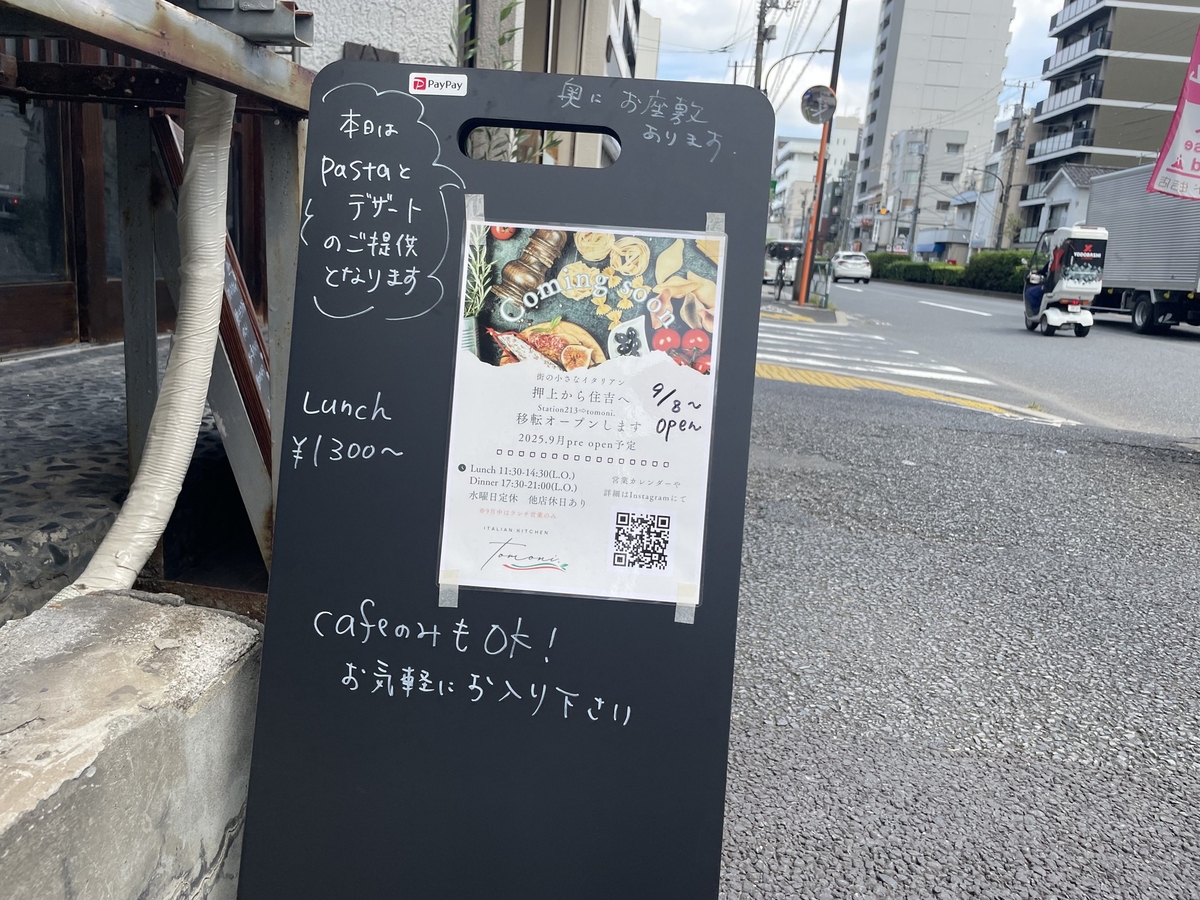 PayPay
奥にお座敷
あります.
本日は
pastaと
デザート
のご提供
となります
Coming soon
街の小さなイタリアン
押上から住吉へ
Station213⇨tomoni.
移転オープンします
2025.9月pre open予定
9/8〜
open
Lunch 11:30-14:30(L.O.)
Dinner 17:30-21:00(L.O.)
水曜日定休 他店休日あり
※9月中はランチ営業のみ
営業カレンダーや
詳細はInstagramにて
ITALIAN KITCHEN
Tomoni.
Lunch
¥1300〜
cafeのみもOK!
お気軽にお入り下さい
YODOBASHI